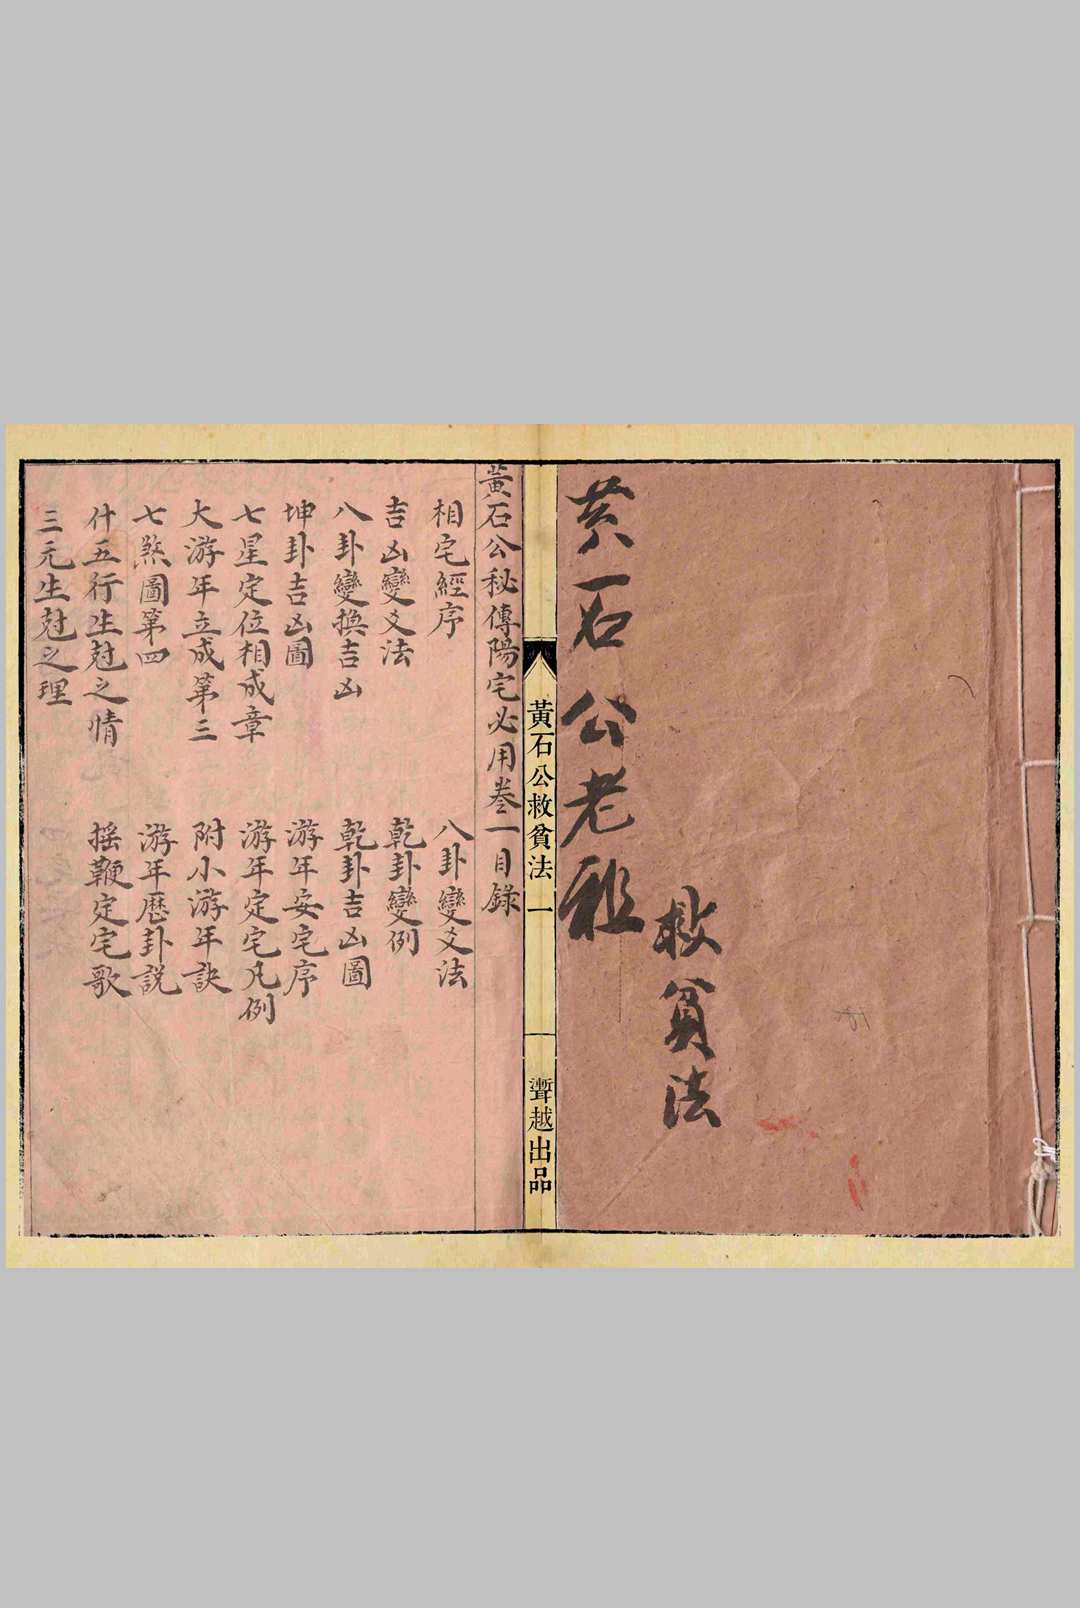 黄石公老祖
救貧法
黃石公救貧法 一
聾越出品
黃石公秘傳陽宅必用卷一目錄
相宅經序 八卦變爻法
吉凶變爻法 乾卦變例
八卦變換吉凶 乾卦吉凶圖
坤卦吉凶圖 游年安宅序
七星定位相成章 游年定宅凡例
大游年立成第三 附小游年訣
七煞圖第四 游年歷卦説
什五行生尅之情 摇鞭定宅歌
三元生尅之理